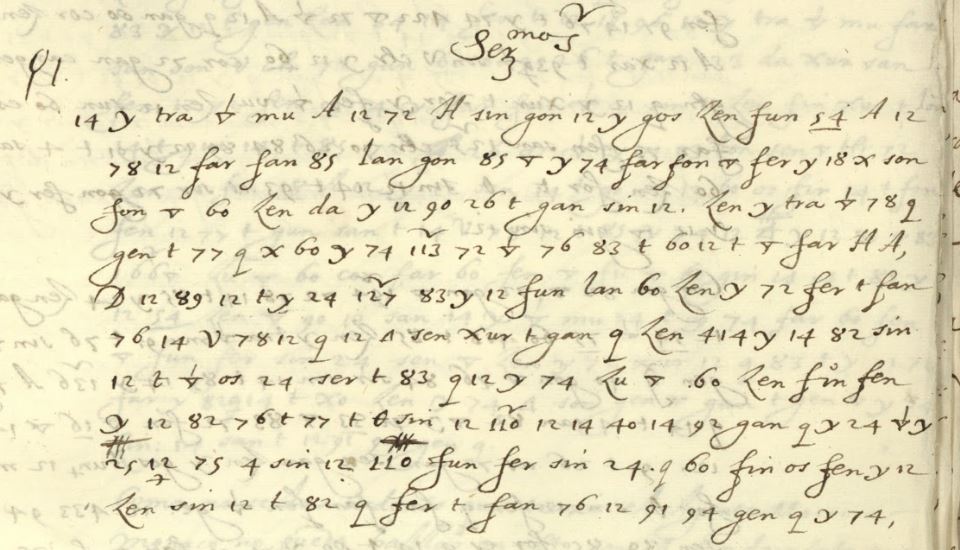 Sermos
14 y tra mu A 12 72 H sin gon 12 y gos Len fun 54 A 12
78 12 far fan 85 lan gon 85 y 74 far fon fer y 18 x son
fon 60 Len da y 12 90 26 t gan sin 12. Len y tra 78 q
gen t 77 q x 60 y 74 113 72 76 83 t 60 12 t far H A,
D 12 89 12 t y 24 127 83 y 12 fun lan 60 Len y 72 fer t fan
76 14 V 78 12 q 12 sen xur t gan q Len 414 y 14 82 sin
12 t os 24 ser t 83 q 12 y 74 Lu 60 Len fin fen
y 12 82 76 t 77 t sin 12 110 12 14 40 14 92 gan q y 24 y
25 12 75 4 sin 12 110 fun fer sin 24. q 60 fin os fen y 12
Len sin 12 t 82. q fer t fan 76 12 91 94 gen q y 74,